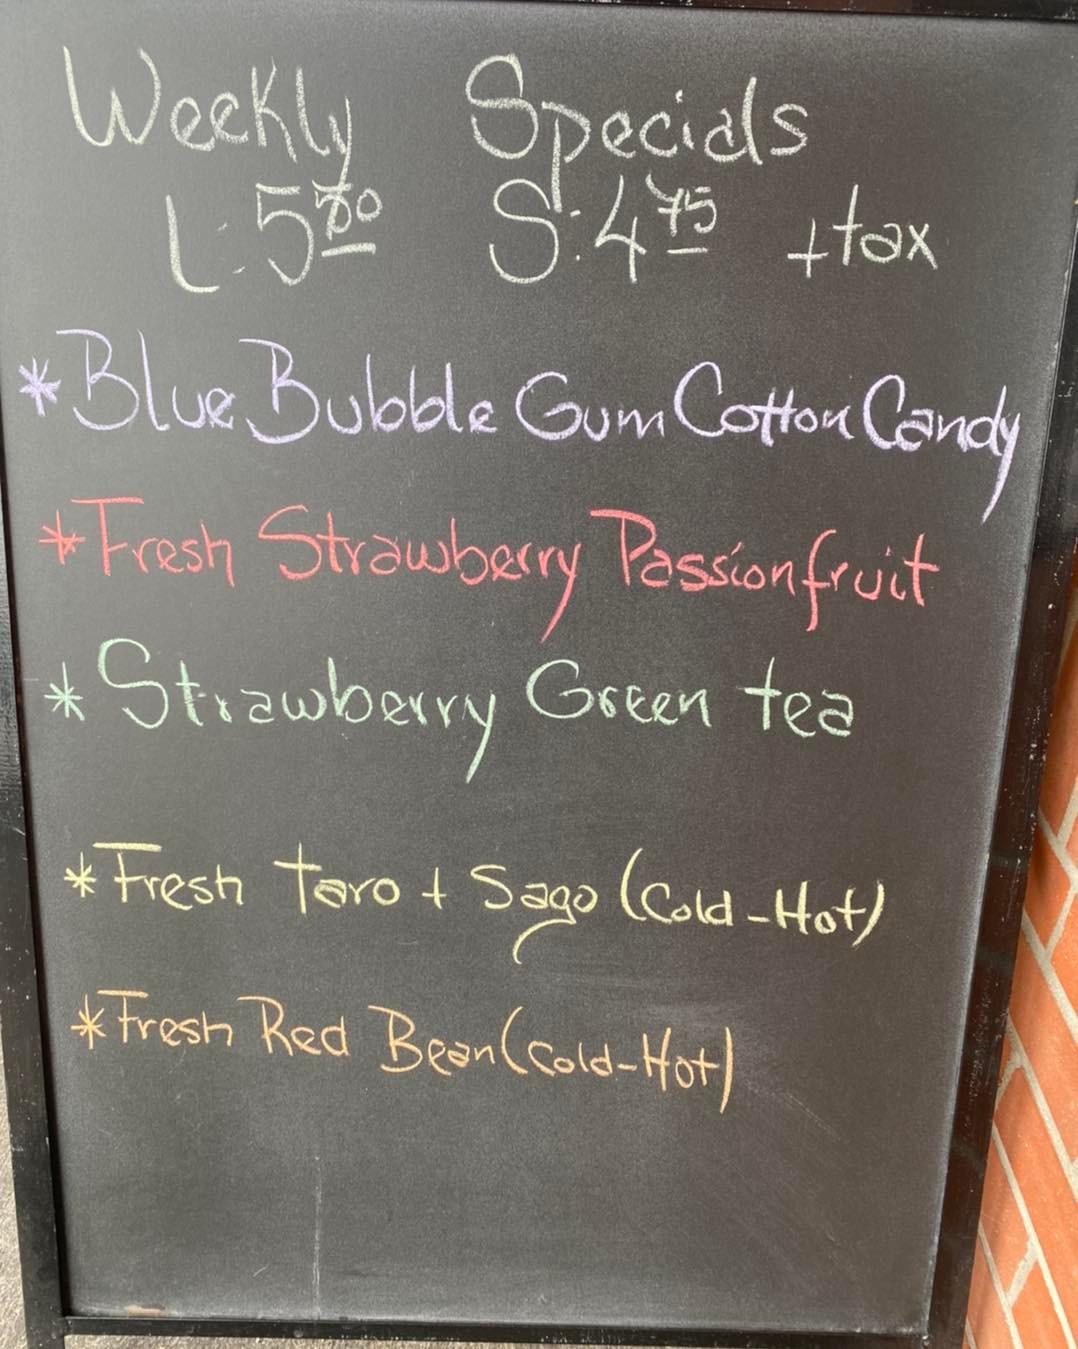 Weekly Specials
L: 5 50 S: 4 75 + tax
* Blue Bubble Gum Cotton Candy
* Fresh Strawberry Passionfruit
* Strawberry Green tea
* Fresh Taro + Sago (Cold-Hot)
* Fresh Red Bean (Cold-Hot)